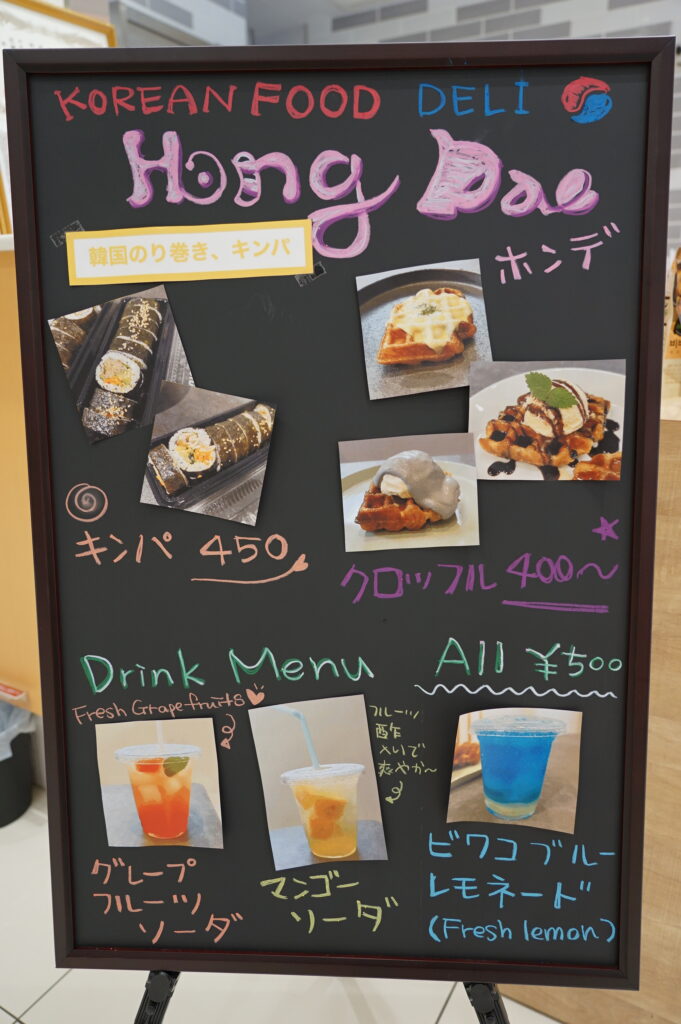 KOREAN FOOD DELI
Hong Dae
ホンデ
韓国のり巻き、キンパ
キンパ 450
クロッフル 400~
Drink Menu
All ¥500
Fresh Grapefruits
フルーツ
酢
メいで
爽やか~
グレープ
フルーツ
ソーダ
マンゴー
ソーダ
ビワコブルー
レモネード
(Fresh lemon)